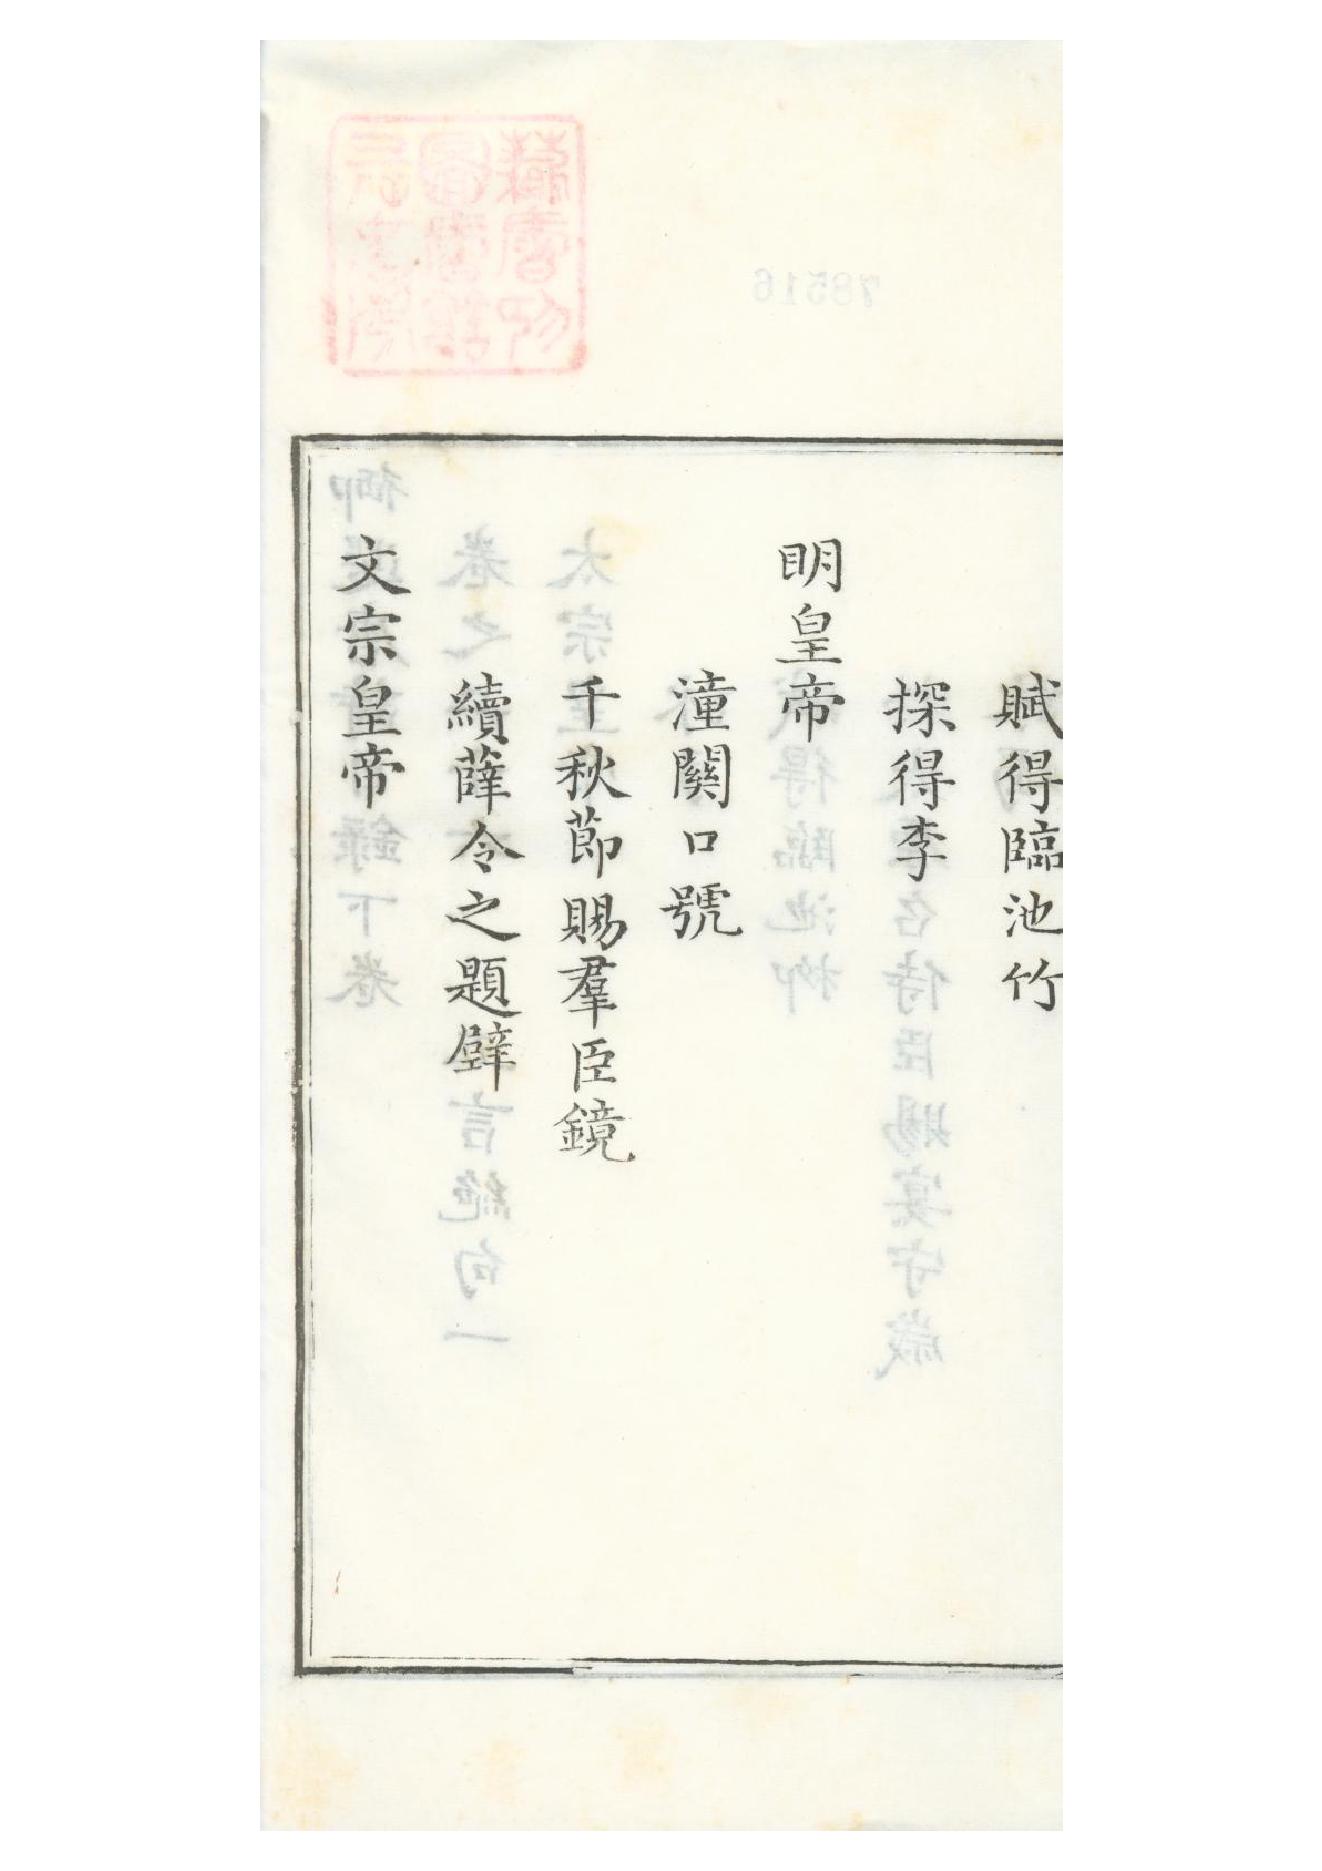 賦得臨池竹
探得李
明皇帝
潼關口號
千秋節賜羣臣鏡
續薛令之題壁
文宗皇帝